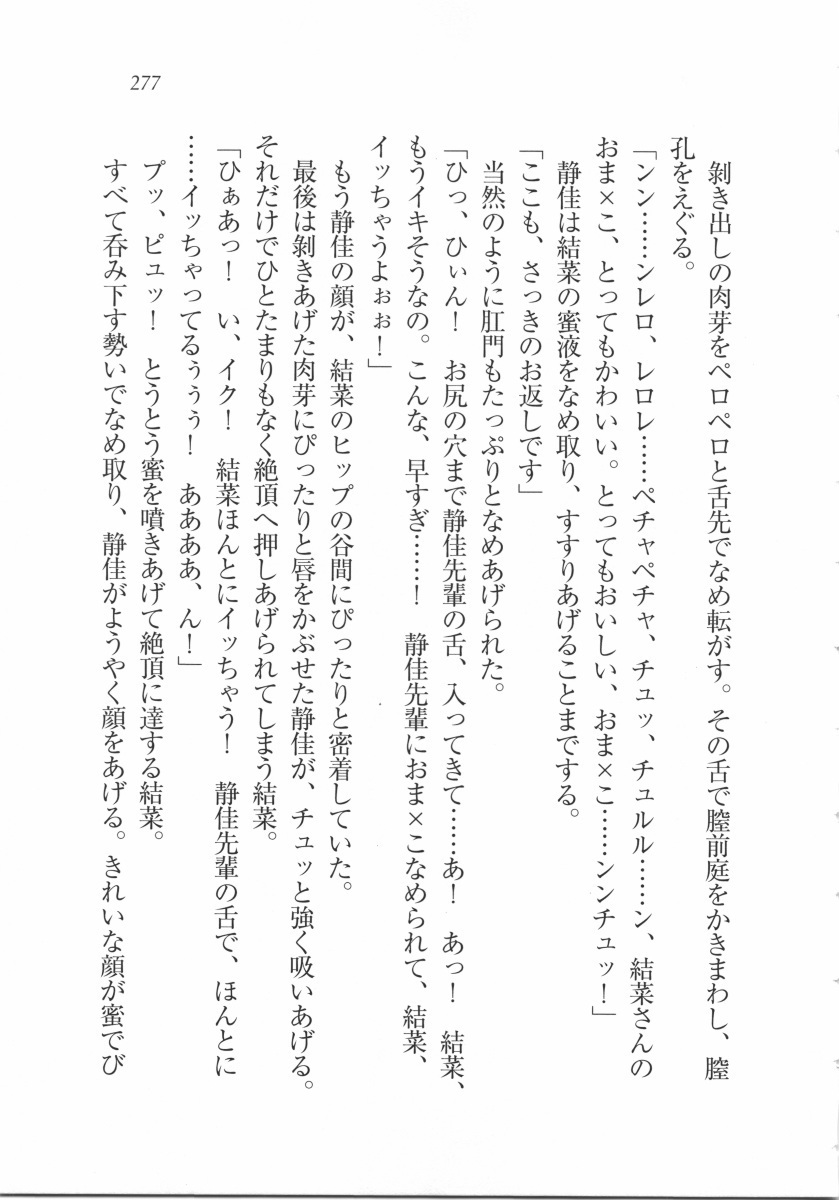 277
剝き出しの肉芽をペロペロと舌先でなめ転がす。その舌で膣前庭をかきまわし、膣
孔をえぐる。
「ンン……ンレロ、レロレ……ペチャペチャ、チュッ、チュルル……ン、結菜さんの
おま×こ、とってもかわいい。とってもおいしい、おま×こ……ンンチュッ！」
静佳は結菜の蜜液をなめ取り、すすりあげることまでする。
「ここも、さっきのお返しです」
当然のように肛門もたっぷりとなめあげられた。
「ひっ、ひぃん！　お尻の穴まで静佳先輩の舌、入ってきて……あ！　あっ！　結菜、
もうイキそうなの。こんな、早すぎ……！　静佳先輩におま×こなめられて、結菜、
イッちゃうよぉぉ！」
もう静佳の顔が、結菜のヒップの谷間にぴったりと密着していた。
最後は剝きあげた肉芽にぴったりと唇をかぶせた静佳が、チュッと強く吸いあげる。
それだけでひとたまりもなく絶頂へ押しあげられてしまう結菜。
「ひぁあっ！　い、イク！　結菜ほんとにイッちゃう！　静佳先輩の舌で、ほんとに
……イッちゃってるぅぅぅ！　ああああ、ん！」
プッ、ピュッ！　とうとう蜜を噴きあげて絶頂に達する結菜。
すべて呑み下す勢いでなめ取り、静佳がようやく顔をあげる。きれいな顔が蜜でび